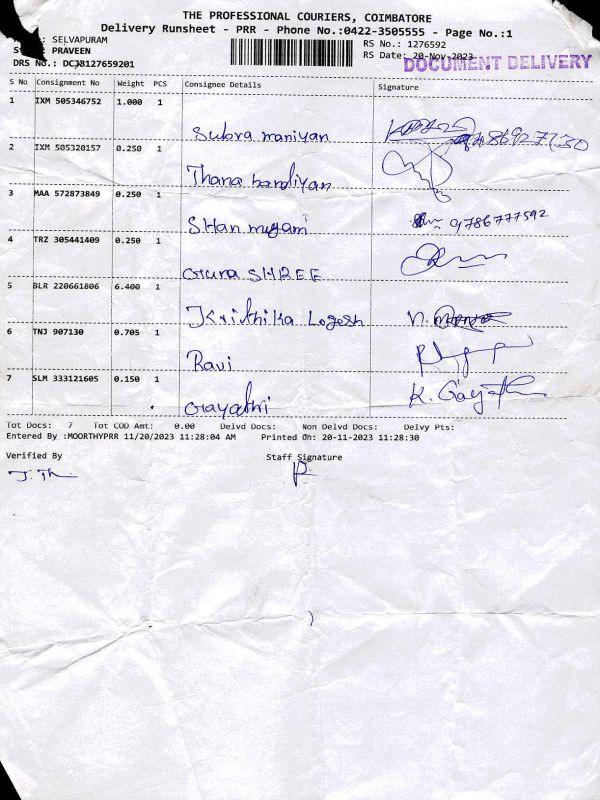 THE PROFESSIONAL COURIERS, COIMBATORE
Delivery Runsheet - PRR - Phone No.:0422-3505555 - Page No.:1
: SELVAPURAM
RS No.: 1276592
: PRAVEEN
RS Date: 20-Nov-2023
DOCUMENT DELIVERY
DRS No.:
S No Consignment No Weight PCS Consignee Details Signature
1 IXM 505346752 1.000 1
Subra maniyan
2 IXM 505320157 0.250 1
Thana bandiyan
3 MAA 572873849 0.250 1
SHan mugam 9786777592
4 TRZ 305441409 0.250 1
Guru SHREE
5 BLR 220661806 6.400 1
Krithika Logesh
6 TNJ 907130 0.705 1
Ravi
7 SLM 333121605 0.150 1
Gayathri K. Gayath
Tot Docs: 7 Tot COD Amt: 0.00 Delvd Docs: Non Delvd Docs: Delvy Pts:
Entered By :MOORTHYPRR 11/20/2023 11:28:04 AM Printed On: 20-11-2023 11:28:30
Verified By Staff Signature